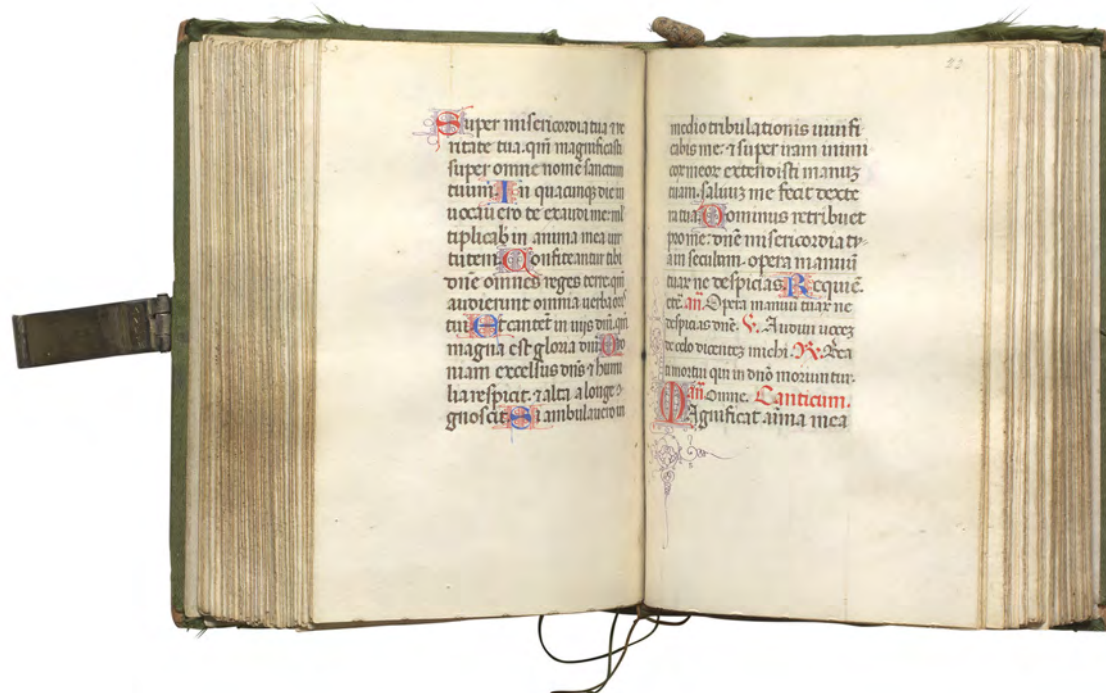 Super misericordia tua ⁊ ue
ritate tua. qm̄ magnificasti
super omne nomē sanctum
tuum. In quacunqꝫ die in
uocauero te exaudi me: ml̄
tiplicab̄ in anima mea uir
tutem. Confiteantur tibi
dn̄e omnes reges terre. qm̄
audierunt omnia uerba oris
tui Et cantēt in uijs dn̄i. qm̄
magna est gloria dn̄i Quo
niam excelsus dn̄s ⁊ humi
lia respicit. ⁊ alta a longe
gnoscit Si ambulauero in
medio tribulationis uiuifi
cabis me: ⁊ super iram inimi
coꝝ meoꝝ extendisti manuꝫ
tuam. saluuꝫ me fecit dexte
ra tua. Dominus retribuet
pro me: dn̄e misericordia tu
a in seculum. opera manuū
tuaꝝ ne despicias Requiē
etē. an̄. Opera manuū tuaꝝ ne
despicias dn̄e. V. Audiui uoceꝫ
de celo dicenteꝫ michi. R. Bea
ti mortui qui in dn̄o moriuntur.
an̄. Omne. Canticum.
Magnificat aīma mea